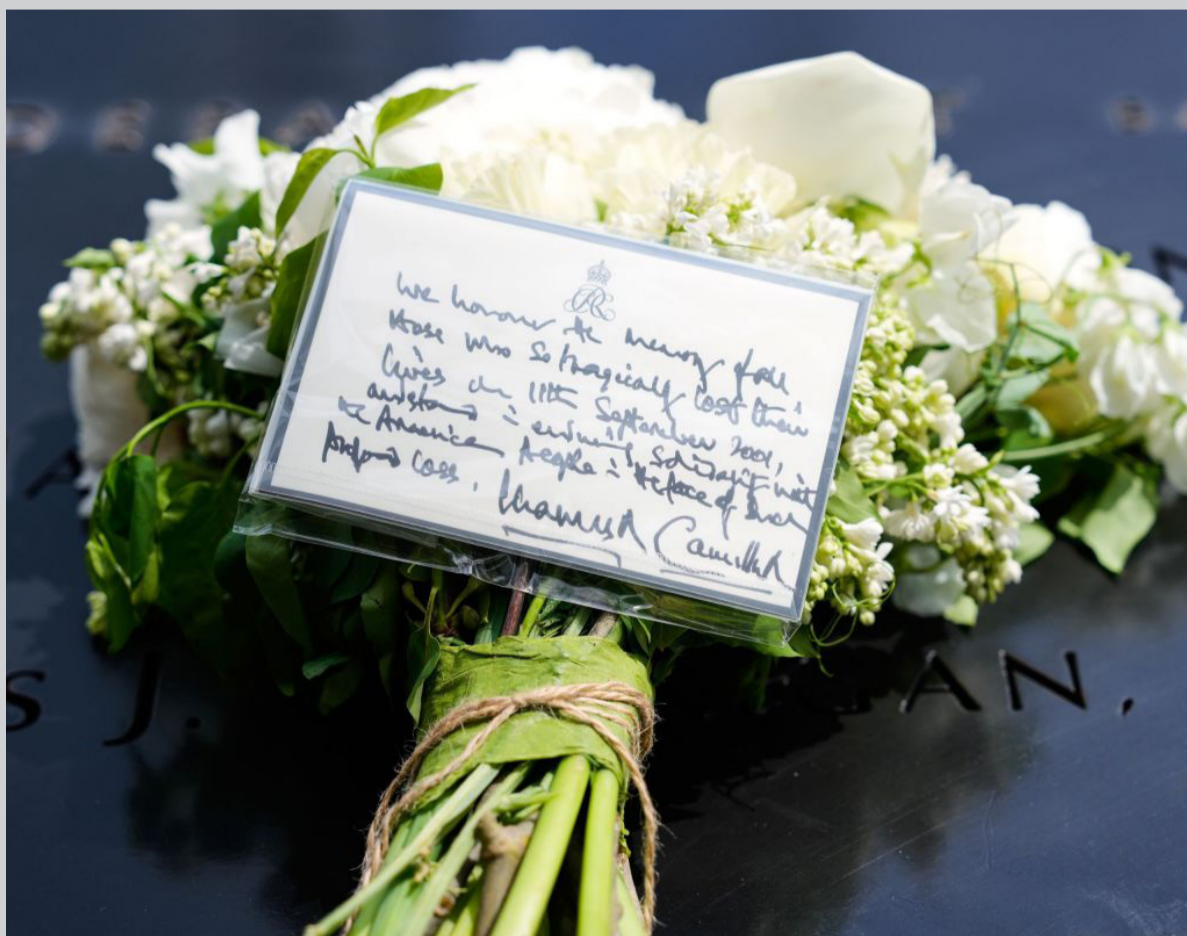 We honour the memory of all
those who so tragically lost their
lives on 11th September 2001,
and stand in enduring solidarity with
the American people in the face of such
profound loss.
Charles R Camilla R
S J.
GAN,